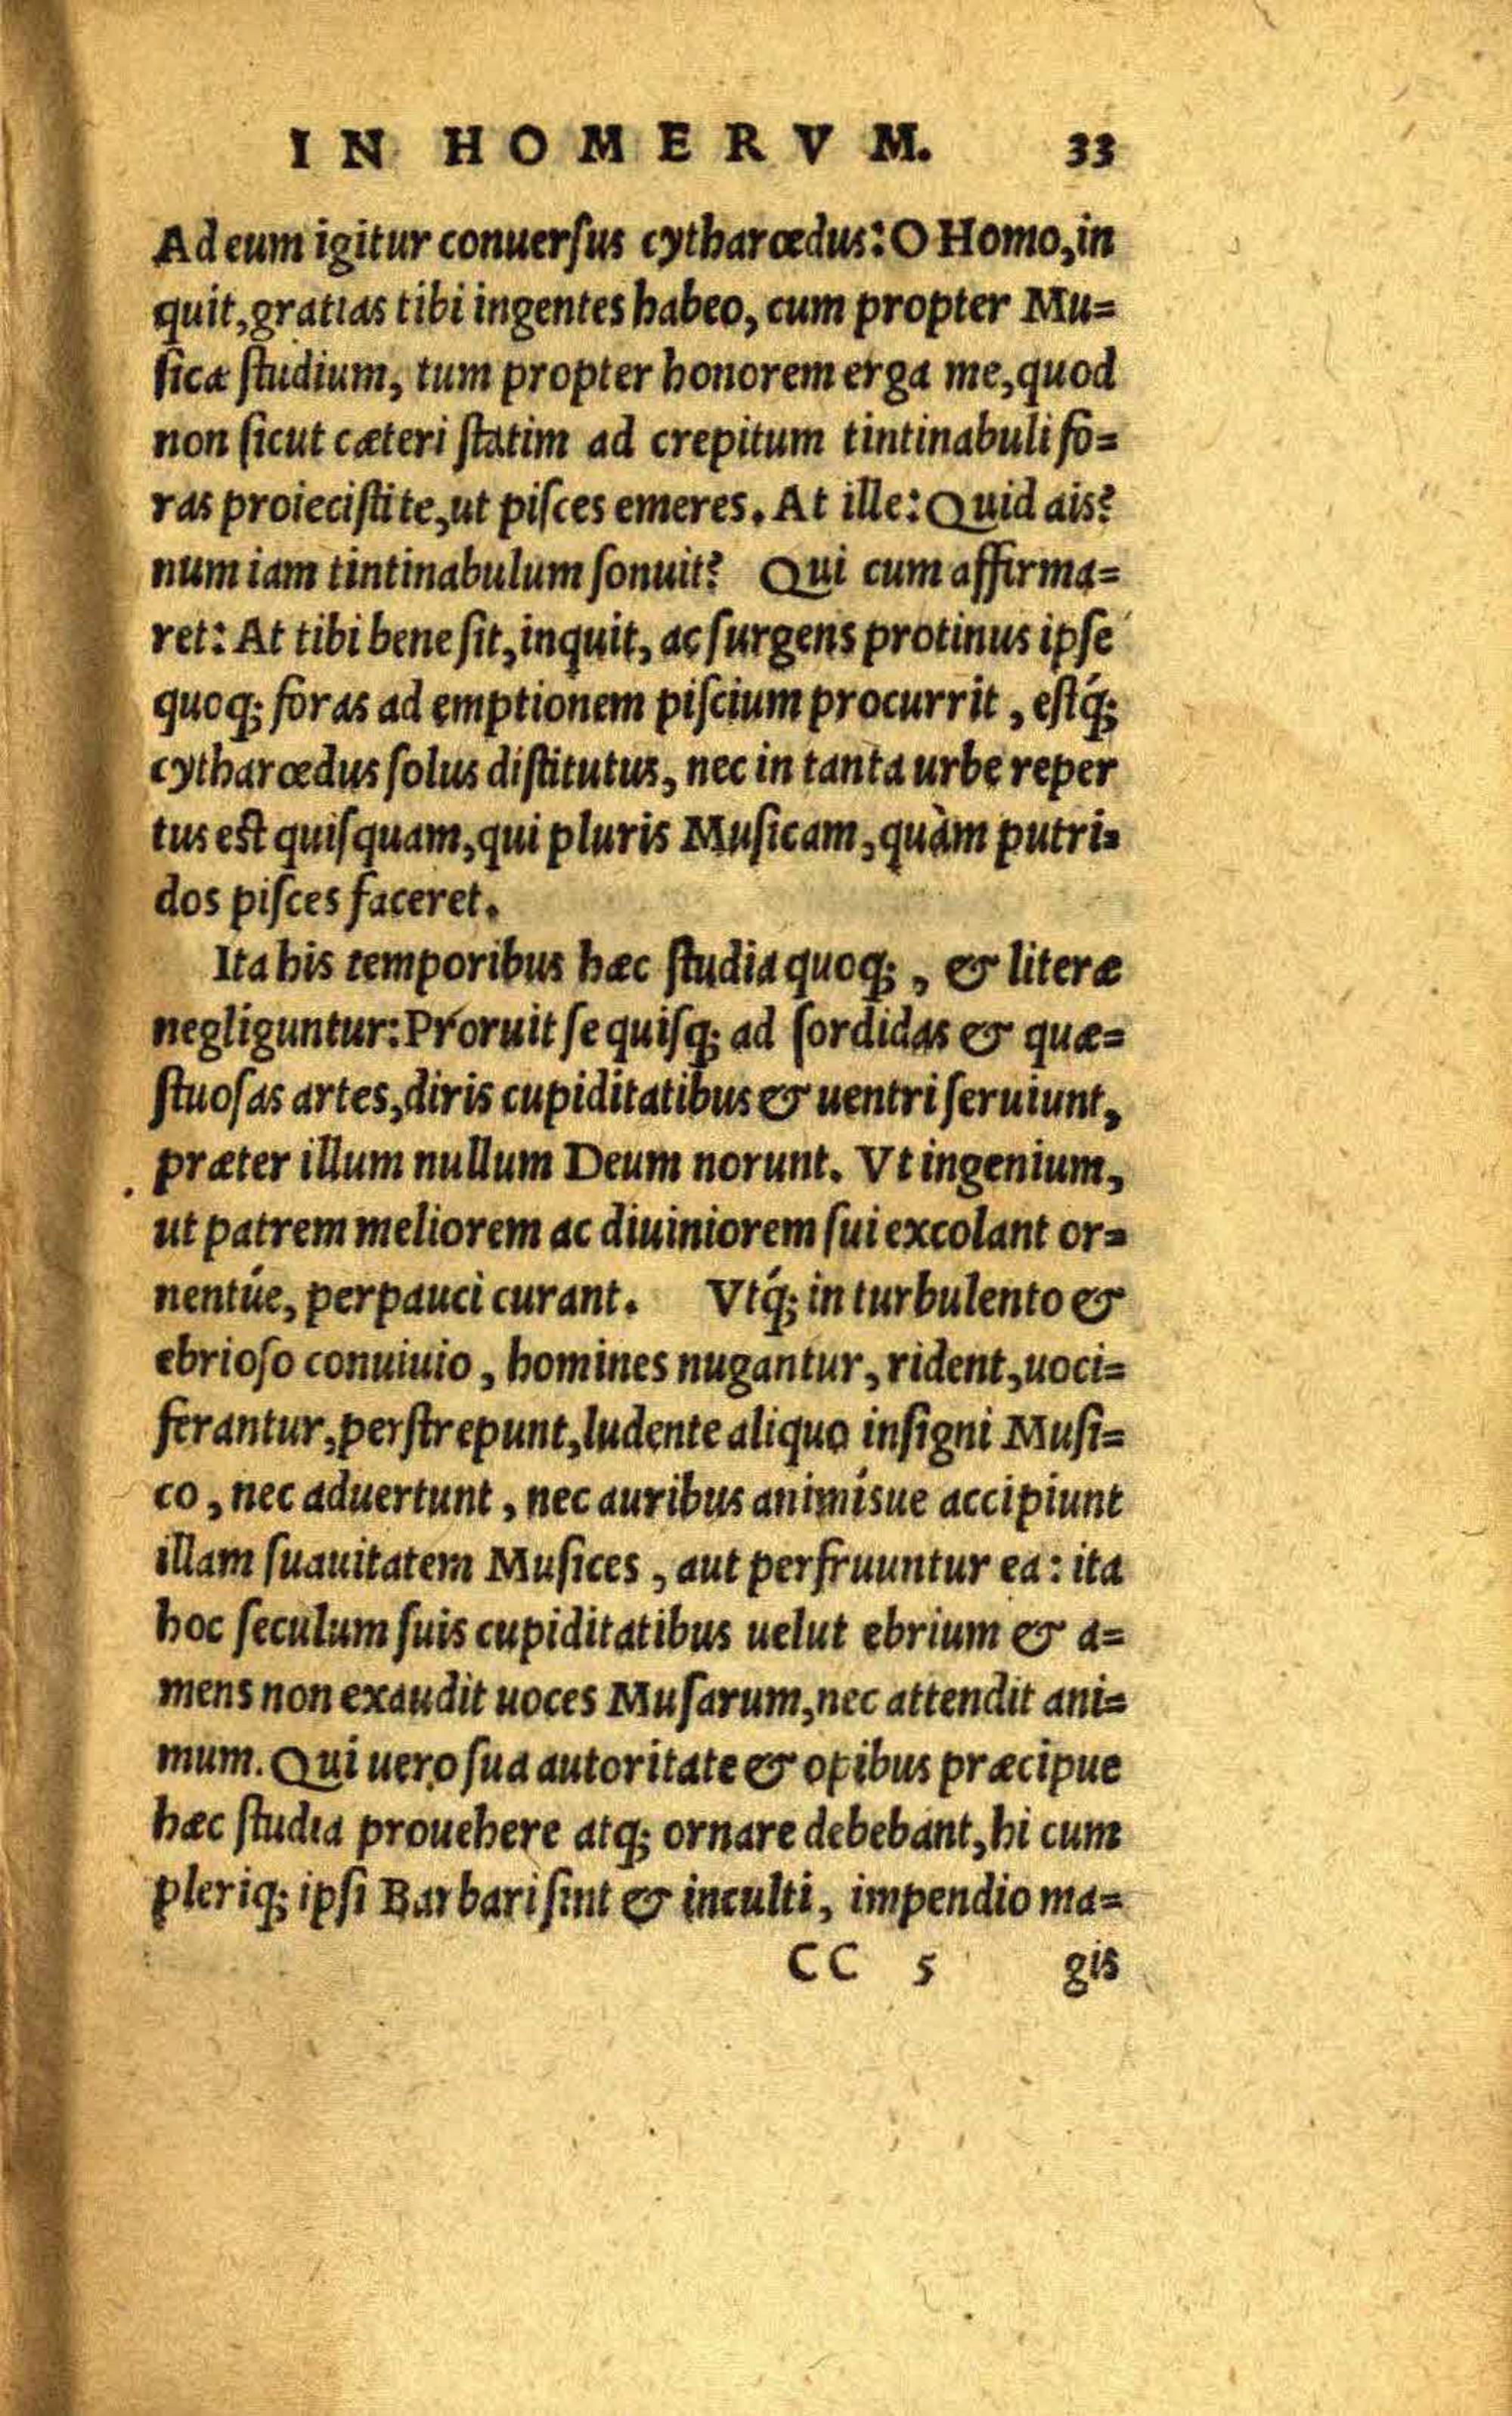 IN HOMERVM. 33
Ad eum igitur conuerſus cytharœdus: O Homo, in
quit, gratias tibi ingentes habeo, cum propter Mu=
ſicæ ſtudium, tum propter honorem erga me, quod
non ſicut cæteri ſtatim ad crepitum tintinabuli fo=
ras proieciſti te, ut piſces emeres. At ille: Quid ais?
num iam tintinabulum ſonuit? Qui cum affirma=
ret: At tibi bene ſit, inquit, ac ſurgens protinus ipſe
quoq; foras ad emptionem piſcium procurrit, eſtq́;
cytharœdus ſolus diſtitutus, nec in tanta urbe reper
tus eſt quiſquam, qui pluris Muſicam, quàm putri=
dos piſces faceret.
Ita his temporibus hæc ſtudia quoq;, & literæ
negliguntur: Proruit ſe quiſq; ad ſordidas & quæ=
ſtuoſas artes, diris cupiditatibus & uentri ſeruiunt,
præter illum nullum Deum norunt. Vt ingenium,
ut patrem meliorem ac diuiniorem ſui excolant or=
nentúe, perpauci curant. Vtq́; in turbulento &
ebrioſo conuiuio, homines nugantur, rident, uoci=
ferantur, perſtrepunt, ludente aliquo inſigni Muſi=
co, nec aduertunt, nec auribus animísue accipiunt
illam ſuauitatem Muſices, aut perfruuntur ea: ita
hoc ſeculum ſuis cupiditatibus uelut ebrium & a=
mens non exaudit uoces Muſarum, nec attendit ani=
mum. Qui uero ſua autoritate & opibus præcipue
hæc ſtudia prouehere atq; ornare debebant, hi cum
pleriq; ipſi Barbari ſint & inculti, impendio ma=
CC 5 gis